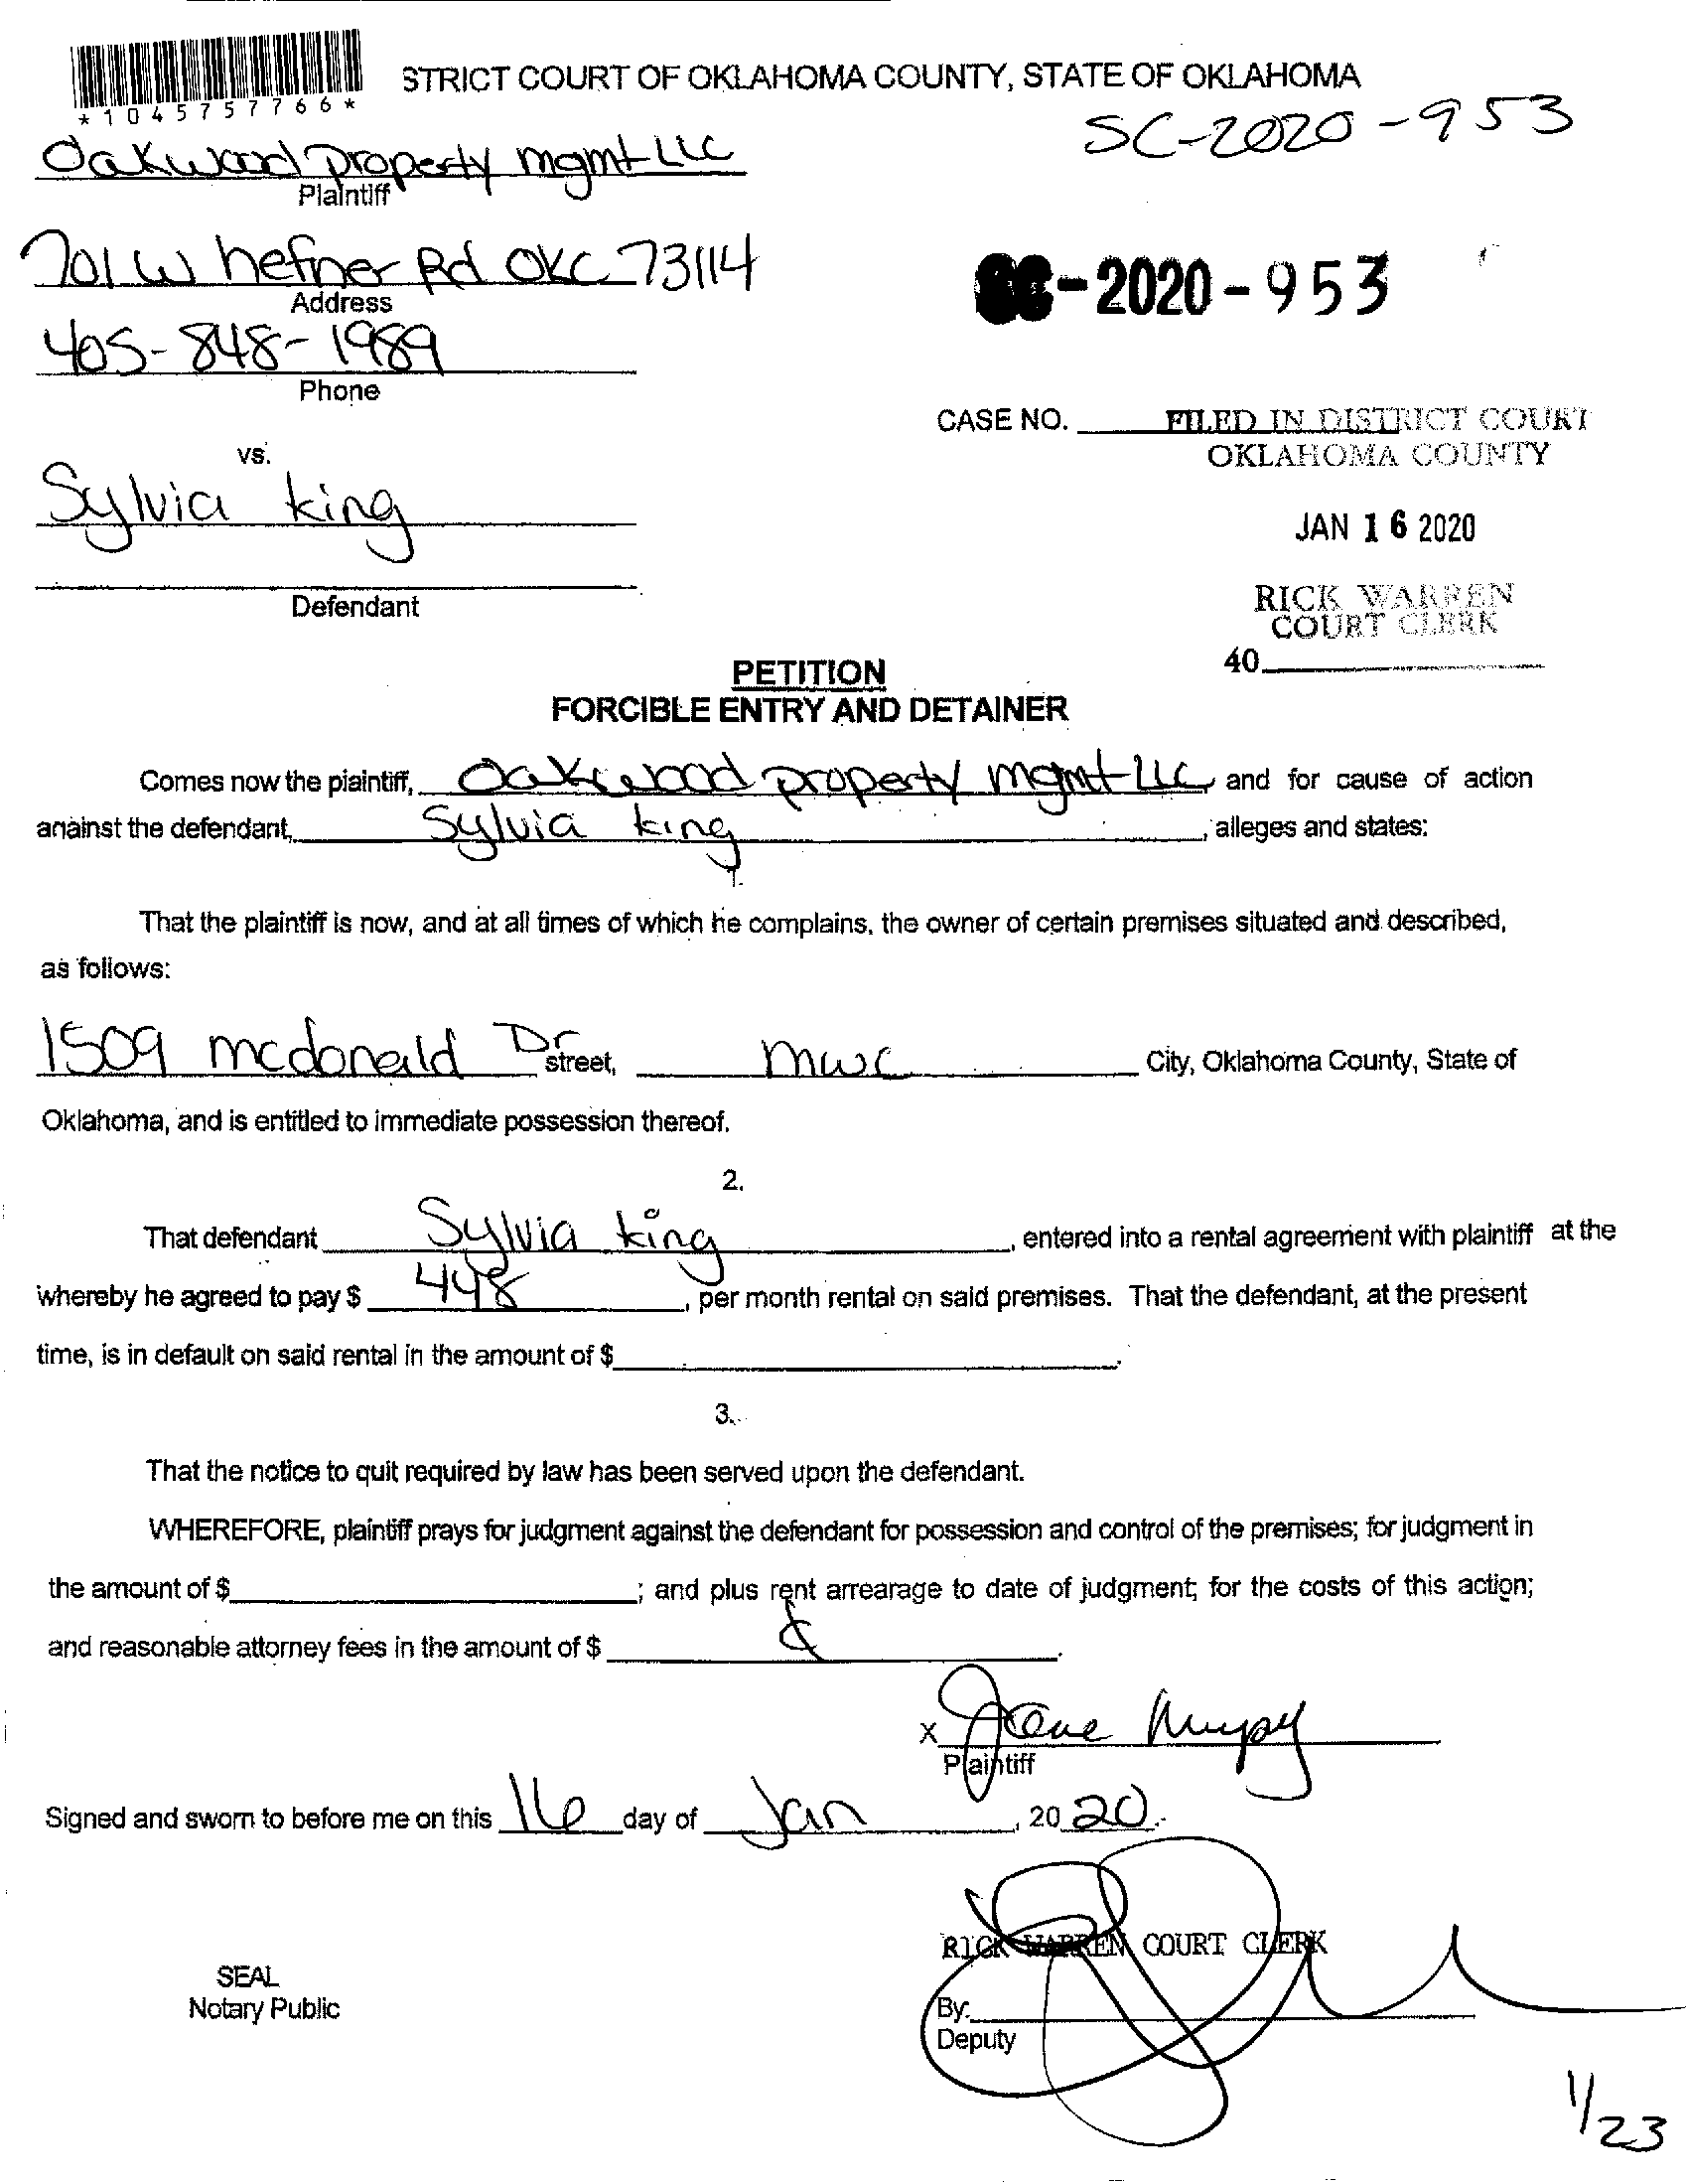 STRICT COURT OF OKLAHOMA COUNTY, STATE OF OKLAHOMA
*1045757766*
SC-2020-953
Oakwood property mgmt LLC
Plaintiff
701 W hefner Rd OKC 73114
Address
SC-2020-953
405-848-1989
Phone
CASE NO. FILED IN DISTRICT COURT
OKLAHOMA COUNTY
vs.
Sylvia king
JAN 16 2020
Defendant
RICK WARREN
COURT CLERK
40
PETITION
FORCIBLE ENTRY AND DETAINER
Comes now the plaintiff, Oakwood property mgmt LLC, and for cause of action
against the defendant, Sylvia king, alleges and states:
1.
That the plaintiff is now, and at all times of which he complains, the owner of certain premises situated and described,
as follows:
1509 mcdonald Dr street, mwc City, Oklahoma County, State of
Oklahoma, and is entitled to immediate possession thereof.
2.
That defendant Sylvia king, entered into a rental agreement with plaintiff at the
whereby he agreed to pay $ 448, per month rental on said premises. That the defendant, at the present
time, is in default on said rental in the amount of $ .
3.
That the notice to quit required by law has been served upon the defendant.
WHEREFORE, plaintiff prays for judgment against the defendant for possession and control of the premises; for judgment in
the amount of $ ; and plus rent arrearage to date of judgment; for the costs of this action;
and reasonable attorney fees in the amount of $ .
X
Plaintiff
Signed and sworn to before me on this 16 day of Jan, 20 20.
RICK WARREN COURT CLERK
SEAL
Notary Public
By:
Deputy
1/23